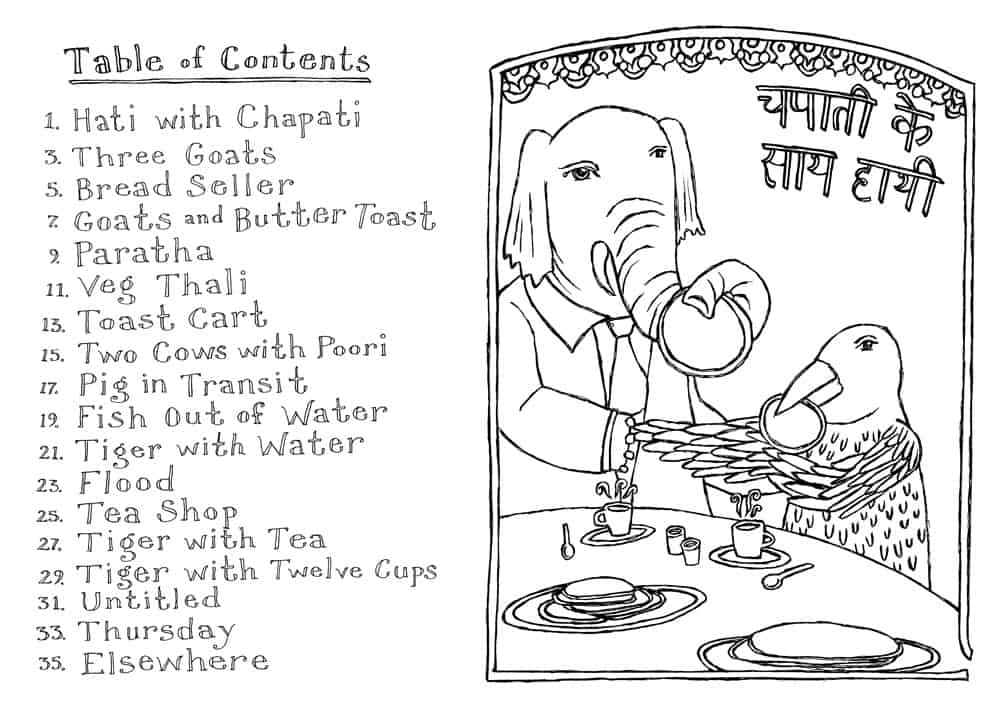 Table of Contents
1. Hati with Chapati
3. Three Goats
5. Bread Seller
7. Goats and Butter Toast
9. Paratha
11. Veg Thali
13. Toast Cart
15. Two Cows with Poori
17. Pig in Transit
19. Fish Out of Water
21. Tiger with Water
23. Flood
25. Tea Shop
27. Tiger with Tea
29. Tiger with Twelve Cups
31. Untitled
33. Thursday
35. Elsewhere
चपाती के
साथ हाथी